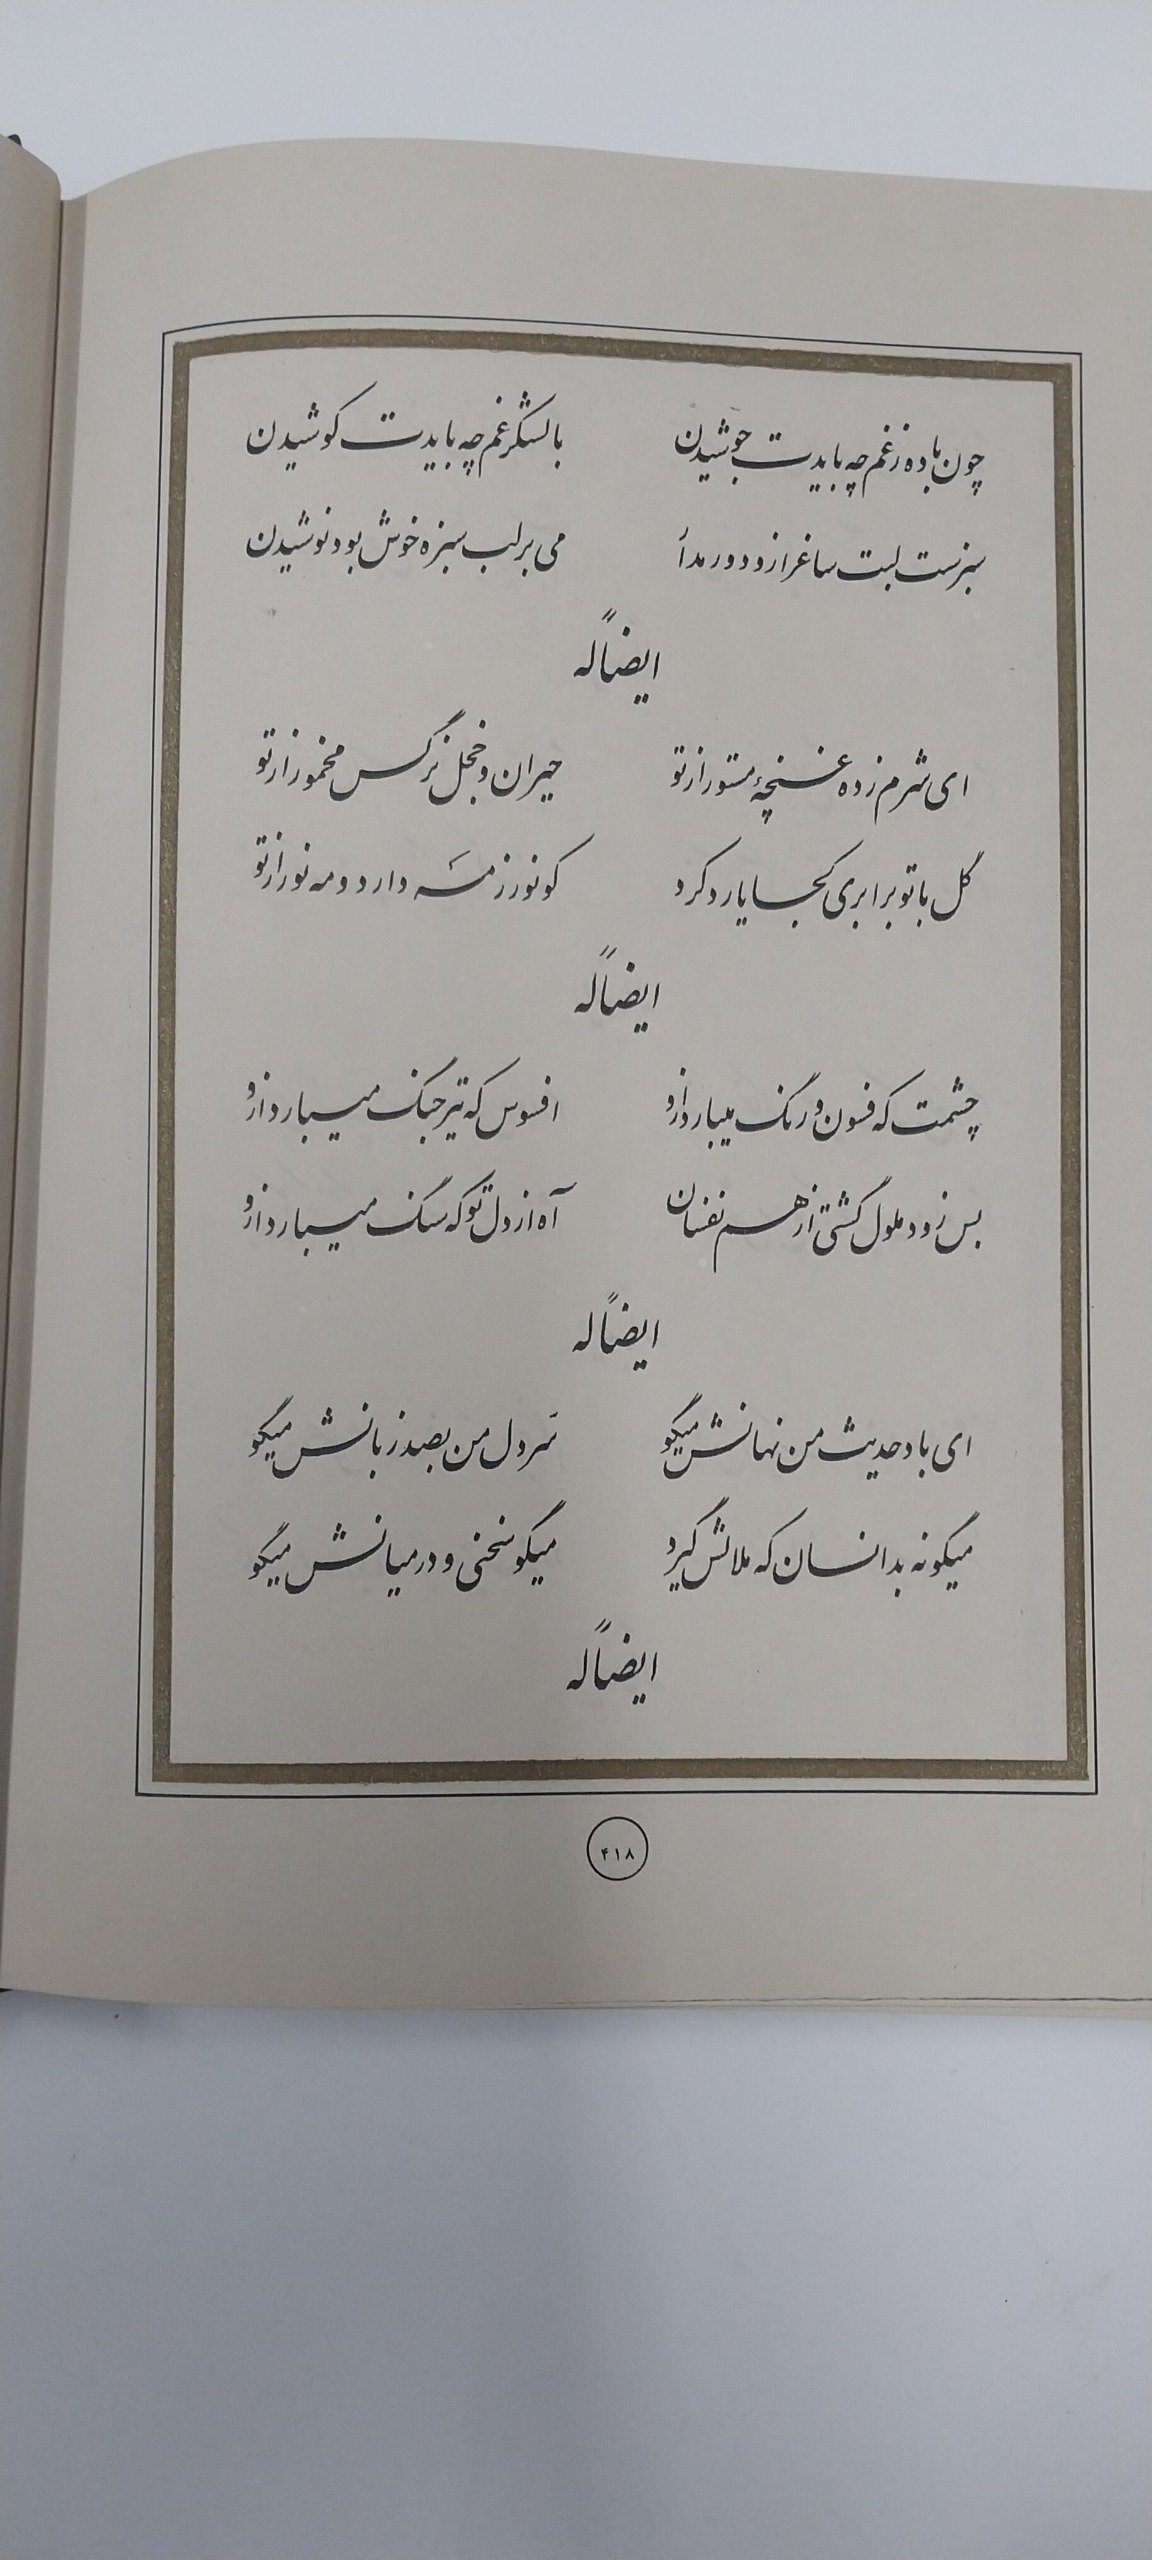 چون باده ز غم چه بایدت جوشیدن با لشکر غم چه بایدت کوشیدن
سبزست لبت ساغر ازو دور مدا می بر لب سبزه خوش بود نوشیدن
ایضاً له
ای شرم زده غنچهٔ مستور از تو حیران و خجل نرگس مخمور از تو
گل با تو برابری کجا یارد کرد کو نور ز مه دارد و مه نور از تو
ایضاً له
چشمت که فسون و رنگ میبارد ازو افسوس که تیر جنگ میبارد ازو
بس زود ملول گشتی از هم نفسان آه از دل تو که سنگ میبارد ازو
ایضاً له
ای باد حدیث من نهانش میگو سر دل من بصد زبانش میگو
میگو نه بدانسان که ملالش گیرد میگو سخنی و در میانش میگو
ایضاً له
۴۱۸